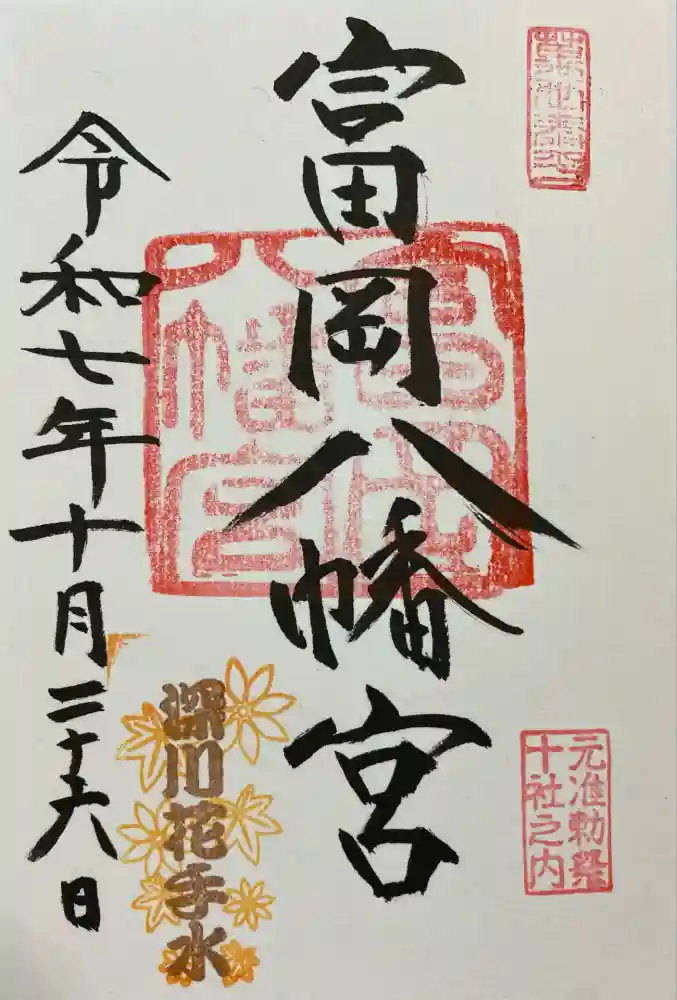 富岡八幡宮
元准勅祭
十社之内
深川花手水
令和七年十月二十六日